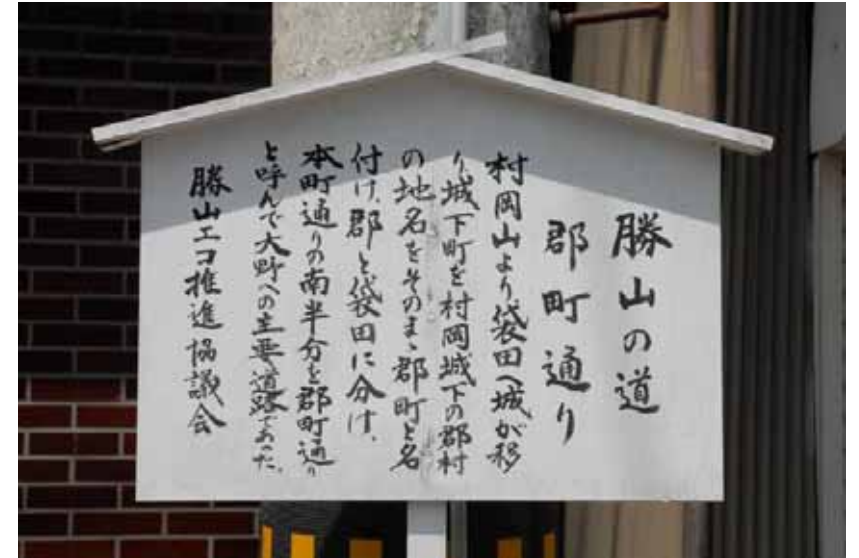 勝山の道
郡町通り
村岡山より袋田へ城が移
り、城下町を村岡城下の郡村
の地名をそのまゝ郡町と名
付け、郡と袋田に分け、
本町通りの南半分を郡町通り
と呼んで大野への主要道路であった。
勝山エコ推進協議会